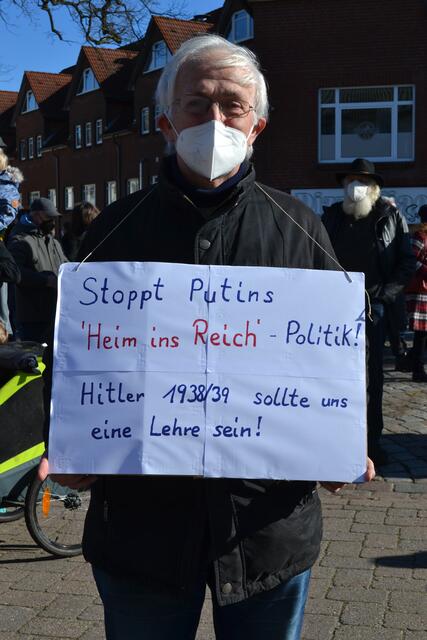 Stoppt Putins
'Heim ins Reich' - Politik!
Hitler 1938/39 sollte uns
eine Lehre sein!